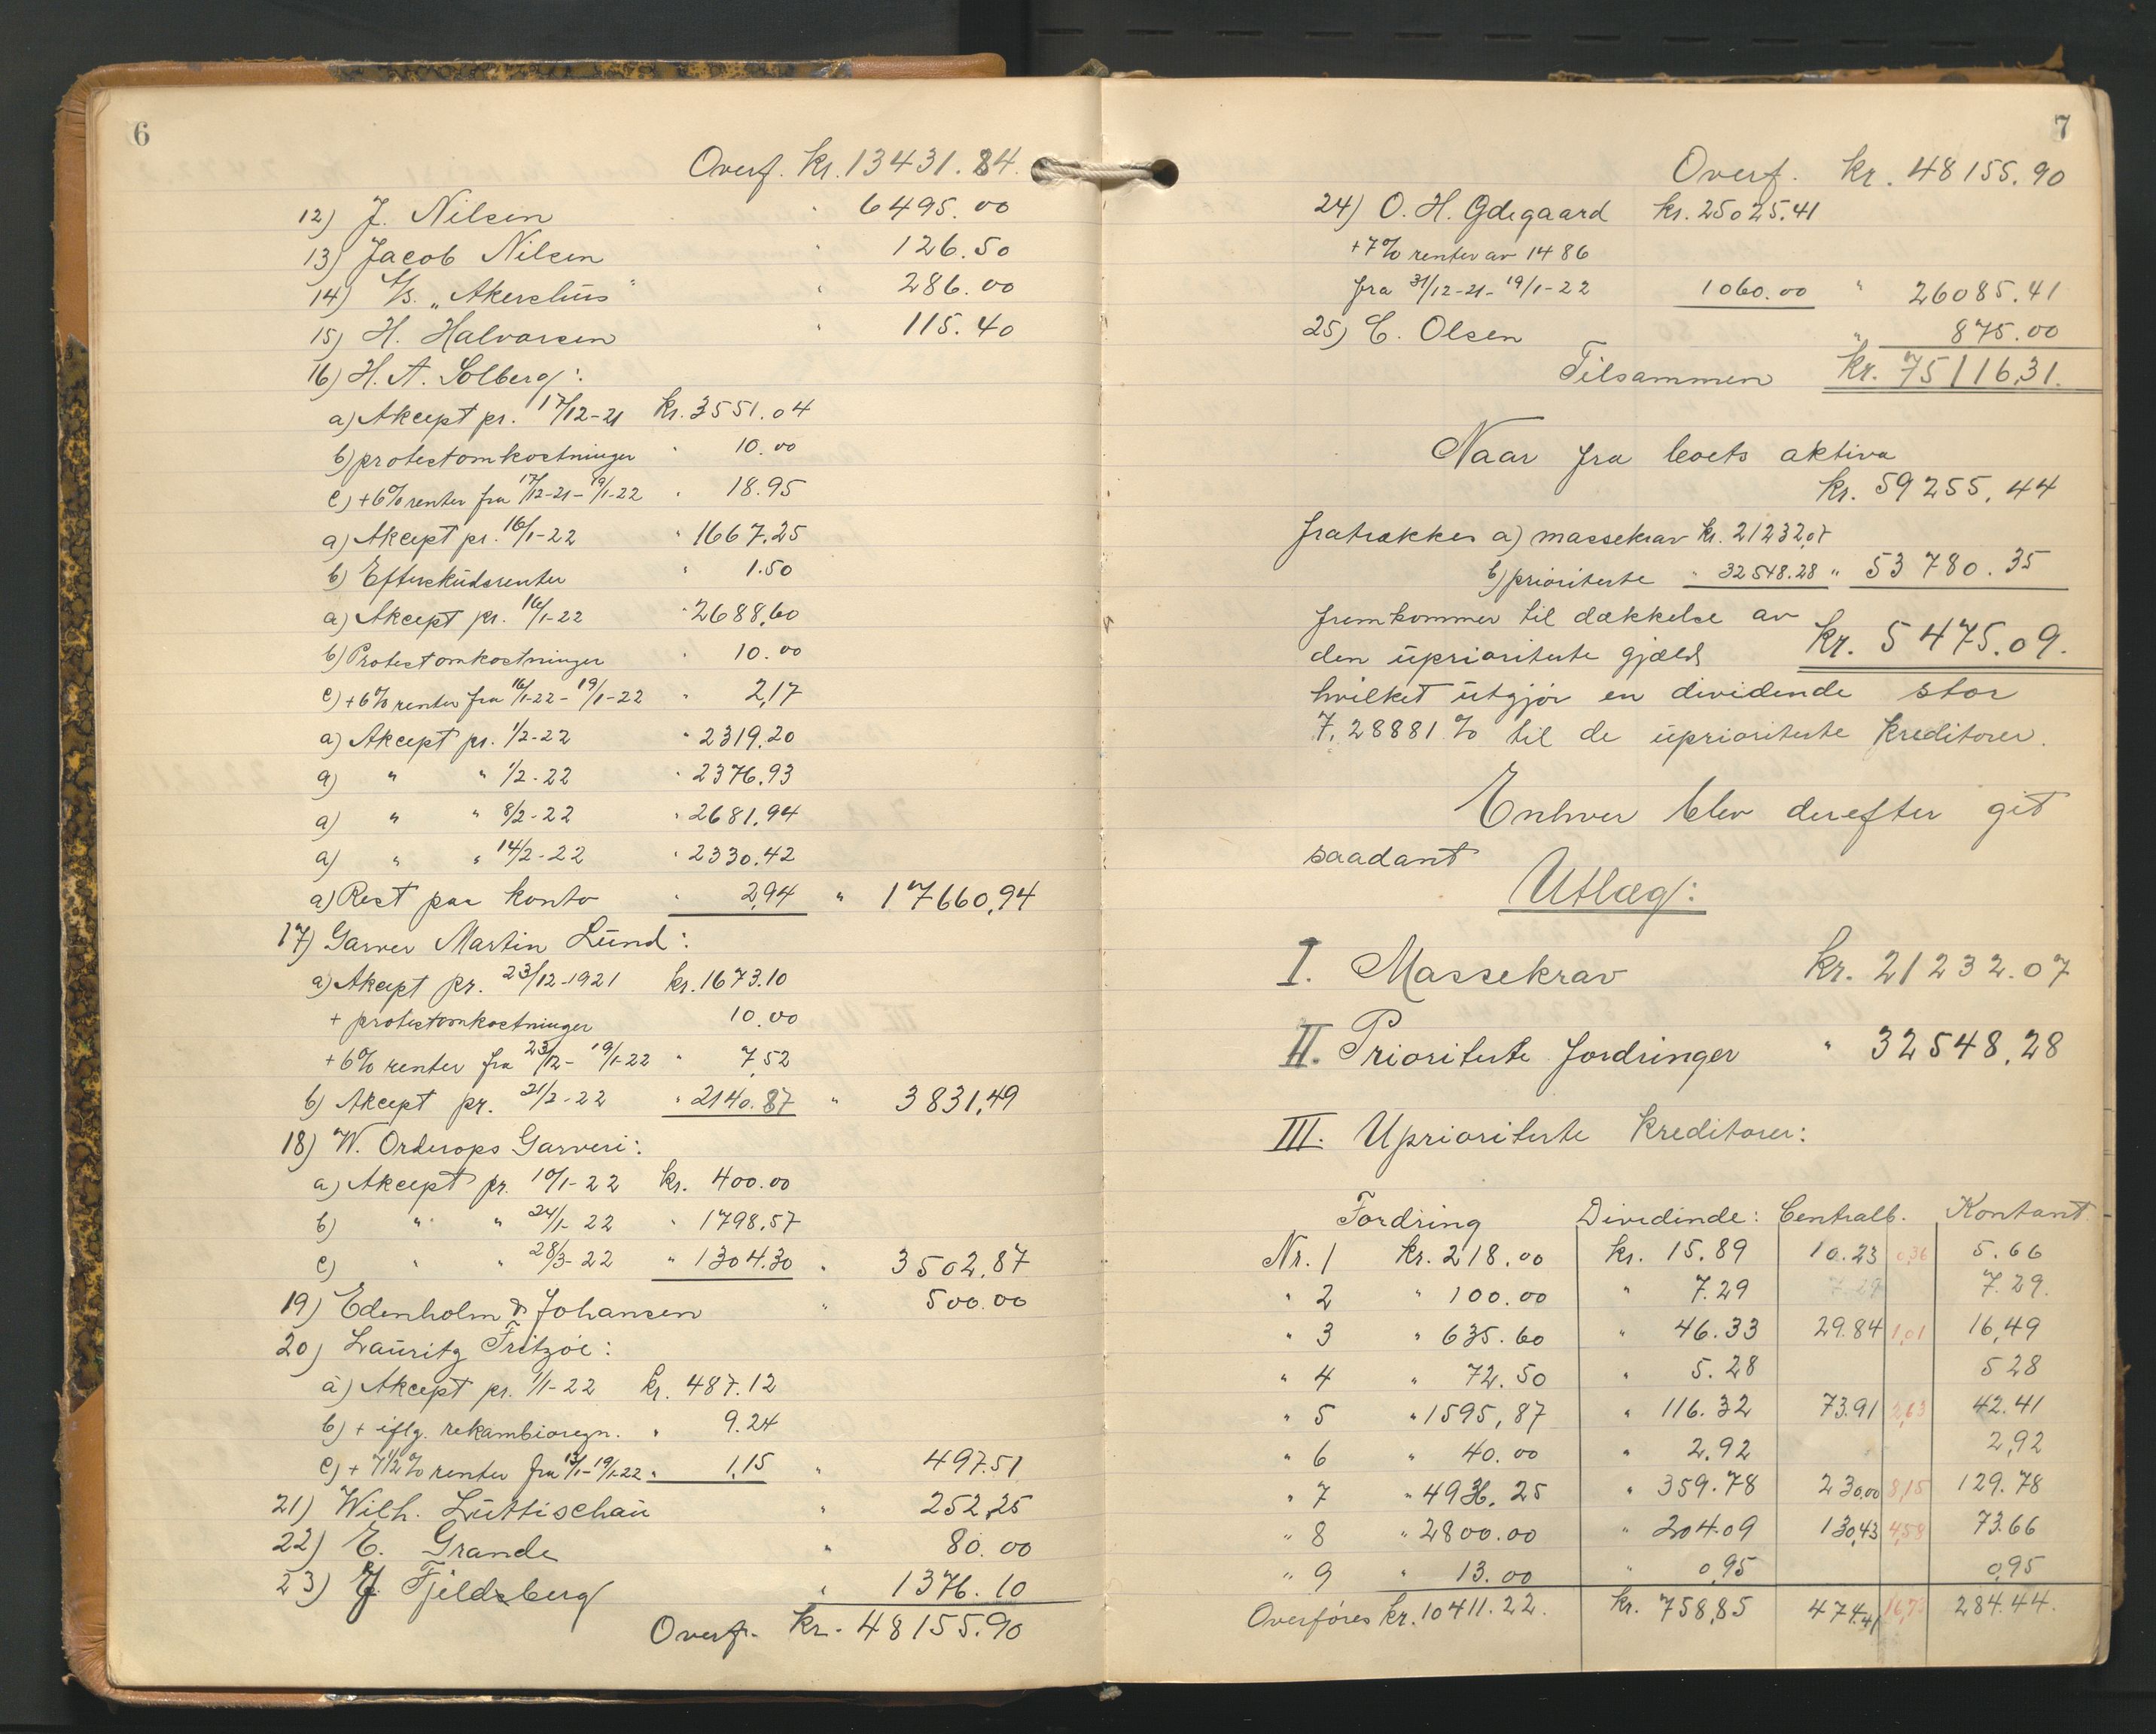 6
Overf. kr. 13431.84.
12) J. Nilsen " 6495.00
13) Jacob Nilsen " 126.50
14) A/s. „Akershus" " 286.00
15) H. Halvorsen " 115.40
16) H. A. Solberg:
a) Akcept pr. 17/12-21 kr. 3551.04
b) protestomkostninger " 10.00
c) +6% renter fra 17/12-21-19/1-22 " 18.95
a) Akcept pr. 16/1-22 " 1667.25
b) Efterskudsrenter " 1.50
a) Akcept pr. 16/1-22 " 2688,60
b) Protestomkostninger " 10.00
c) +6% renter fra 16/1-22-19/1-22 " 2,17
a) Akcept pr. 1/2-22 " 2319.20
a) " " 1/2-22 " 2376.93
a) " " 8/2-22 " 2681.94
a) " " 14/2-22 " 2330.42
a) Rest paa konto " 2,94 " 17660,94
17) Garver Martin Lund:
a) Akcept pr. 23/12-1921 kr. 1673.10
+ protestomkostninger 10.00
+6% renter fra 23/12-19/1-22 " 7,52
b) Akcept pr. 21/2-22 " 2140.87 " 3831,49
18) W. Orderops Garveri:
a) Akcept pr. 10/1-22 kr. 400.00
b) " " 24/1-22 " 1798,57
c) " " 28/3-22 " 1304.30 " 3502,87
19) Edenholm & Johansen " 500.00
20) Lauritz Fritzøe:
a) Akcept pr. 1/1-22 kr. 487.12
b) + iflg. rekambioregn. " 9.24
c) + 7 1/2% renter fra 13/1-19/1-22 " 1,15 " 497.51
21) Wilh. Lüttischau " 252,25
22) E. Grande " 80.00
23) J. Fjeldsberg " 1376.10
Overf. kr. 48155.90
7
Overf. kr. 48155.90
24) O. H. Ødegaard kr. 25025.41
+7% renter av 1486
fra 31/12-21-19/1-22 1060.00 " 26085.41
25) C. Olsen " 875.00
Tilsammen kr. 75116,31.
Naar fra boets aktiva
kr. 59255,44
fratrækkes a) massekrav kr. 21232,07
b) prioriterte " 32548.28 " 53780.35
fremkommer til dækkelse av
den uprioriterte gjæld kr. 5475.09.
hvilket utgjør en dividende stor
7,28881% til de uprioriterte kreditorer.
Enhver blev derefter git
saadant
Utlæg:
I. Massekrav kr. 21232.07
II. Prioriterte fordringer " 32548,28
III. Uprioriterte kreditorer:
Fordring Dividinde: Centralb. Kontant.
Nr. 1 kr. 218.00 kr. 15.89 10.23 0,36 5.66
" 2 " 100.00 " 7.29 7.29 7.29.
" 3 " 635.60 " 46.33 29.84 1,01 16,49
" 4 " 72.50 " 5.28 528
" 5 " 1595,87 " 116.32 73.91 2,63 42.41
" 6 " 40.00 " 2.92 2,92
" 7 " 4936.25 " 359.78 230.00 8,15 129.78
" 8 " 2800.00 " 204.09 130,43 4,58 73.66
" 9 " 13.00 " 0,95 0,95
Overføres kr. 10411.22. kr. 758,85 474.41 16,73 284.44.